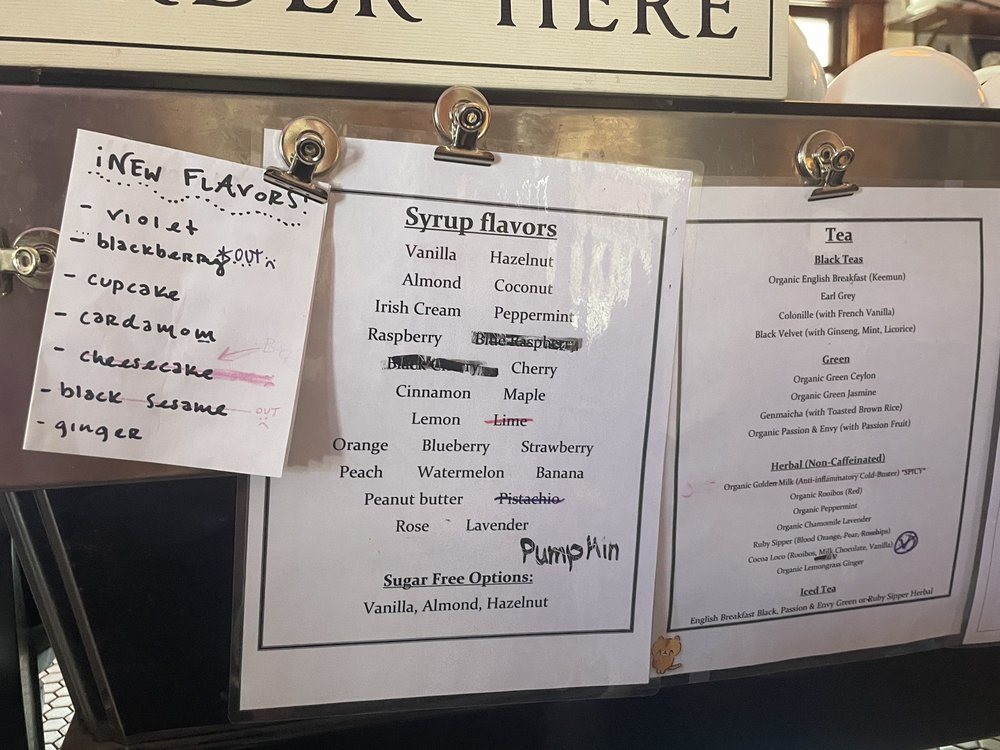 ORDER HERE
¡NEW FLAVORS!
- violet
- blackberry *OUT
- cupcake
- cardamom
- cheesecake
- black sesame OUT
- ginger
Syrup flavors
Vanilla Hazelnut
Almond Coconut
Irish Cream Peppermint
Raspberry Blue Raspberry
Black Cherry Cherry
Cinnamon Maple
Lemon Lime
Orange Blueberry Strawberry
Peach Watermelon Banana
Peanut butter Pistachio
Rose Lavender
PumpKin
Sugar Free Options:
Vanilla, Almond, Hazelnut
Tea
Black Teas
Organic English Breakfast (Keemun)
Earl Grey
Colonille (with French Vanilla)
Black Velvet (with Ginseng, Mint, Licorice)
Green
Organic Green Ceylon
Organic Green Jasmine
Genmaicha (with Toasted Brown Rice)
Organic Passion & Envy (with Passion Fruit)
Herbal (Non-Caffeinated)
Organic Golden Milk (Anti-inflammatory Cold-Buster) "SPICY"
Organic Rooibos (Red)
Organic Peppermint
Organic Chamomile Lavender
Ruby Sipper (Blood Orange, Pear, Rosehips)
Cocoa Loco (Rooibos, Milk Chocolate, Vanilla) V
Organic Lemongrass Ginger
Iced Tea
English Breakfast Black, Passion & Envy Green or Ruby Sipper Herbal